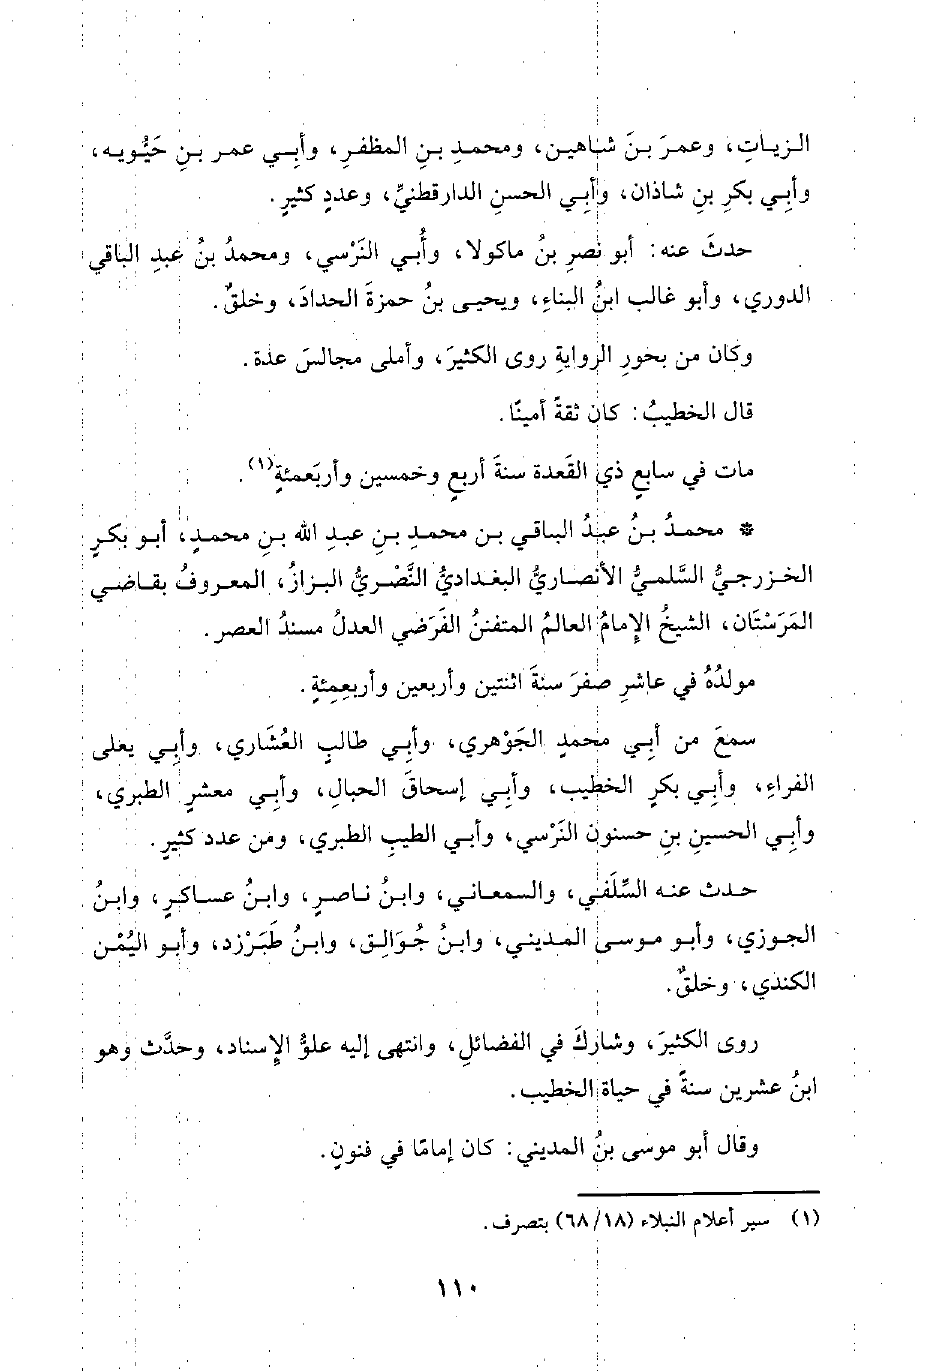 الزيات، وعمرَ بنَ شاهين، ومحمدِ بنِ المظفرِ، وأبِي عمر بنِ حَيُّويه،
وأبِي بكرِ بنِ شاذان، وأَبِي الحسنِ الدارقطنيِّ، وعددٍ كثيرٍ.
حدثَ عنه: أبو نصرِ بنُ ماكولا، وأُبي النَرْسي، ومحمدُ بنُ عبدِ الباقي
الدوري، وأبو غالب ابنُ البناءِ، ويحيى بنُ حمزةَ الحدادَ، وخلقٌ.
وكان من بحورِ الروايةِ روى الكثيرَ، وأملى مجالسَ عدة.
قال الخطيبُ: كان ثقةً أمينًا.
مات في سابعِ ذي القَعدة سنةَ أربعٍ وخمسين وأربَعمئةٍ(١).
* محمدُ بنُ عبدُ الباقي بن محمدِ بنِ عبدِ الله بنِ محمدٍ، أبو بكرٍ
الخزرجيُّ السَّلميُّ الأنصاريُّ البغداديُّ النَّصْريُّ البزازُ، المعروفُ بقاضي
المَرَسْتَان، الشيخُ الإمامُ العالمُ المتفننُ الفَرَضي العدلُ مسندُ العصر.
مولدُهُ في عاشرِ صفرَ سنةَ اثنتين وأربعين وأربعمِئةٍ.
سمعَ من أبي محمدٍ الجَوْهري، وأبِي طالبٍ العُشَاري، وأبِي يعلى
الفراءِ، وأبِي بكرٍ الخطيب، وأبِي إسحاقَ الحبالِ، وأبي معشرٍ الطبري،
وأبِي الحسينِ بنِ حسنون النَرْسي، وأبي الطيبِ الطبري، ومن عدد كثيرٍ.
حدث عنه السِّلَفي، والسمعاني، وابنُ ناصرٍ، وابنُ عساكرٍ، وابنُ
الجوزي، وأبو موسى المديني، وابنُ جُوَالِق، وابنُ طَبَرْزد، وأبو اليُمْن
الكندي، وخلقٌ.
روى الكثيرَ، وشاركَ في الفضائلِ، وانتهى إليه علوُّ الإسناد، وحدَّث وهو
ابنُ عشرين سنةً في حياة الخطيب.
وقال أبو موسى بنُ المديني: كان إمامًا في فنونٍ.
(١) سير أعلام النبلاء (٦٨/١٨) بتصرف.
١١٠